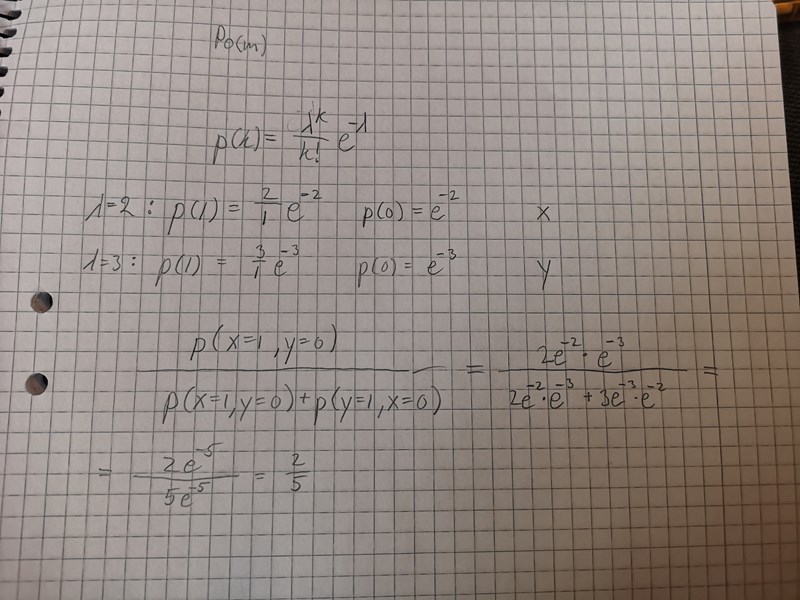 Po(m)
p(k) = λ^k/k! e^-λ
λ=2 : p(1) = 2/1 e^-2 p(0) = e^-2 x
λ=3 : p(1) = 3/1 e^-3 p(0) = e^-3 y
p(x=1, y=0) / p(x=1, y=0) + p(y=1, x=0) = 2e^-2 · e^-3 / 2e^-2 · e^-3 + 3e^-3 · e^-2 =
= 2e^-5 / 5e^-5 = 2/5